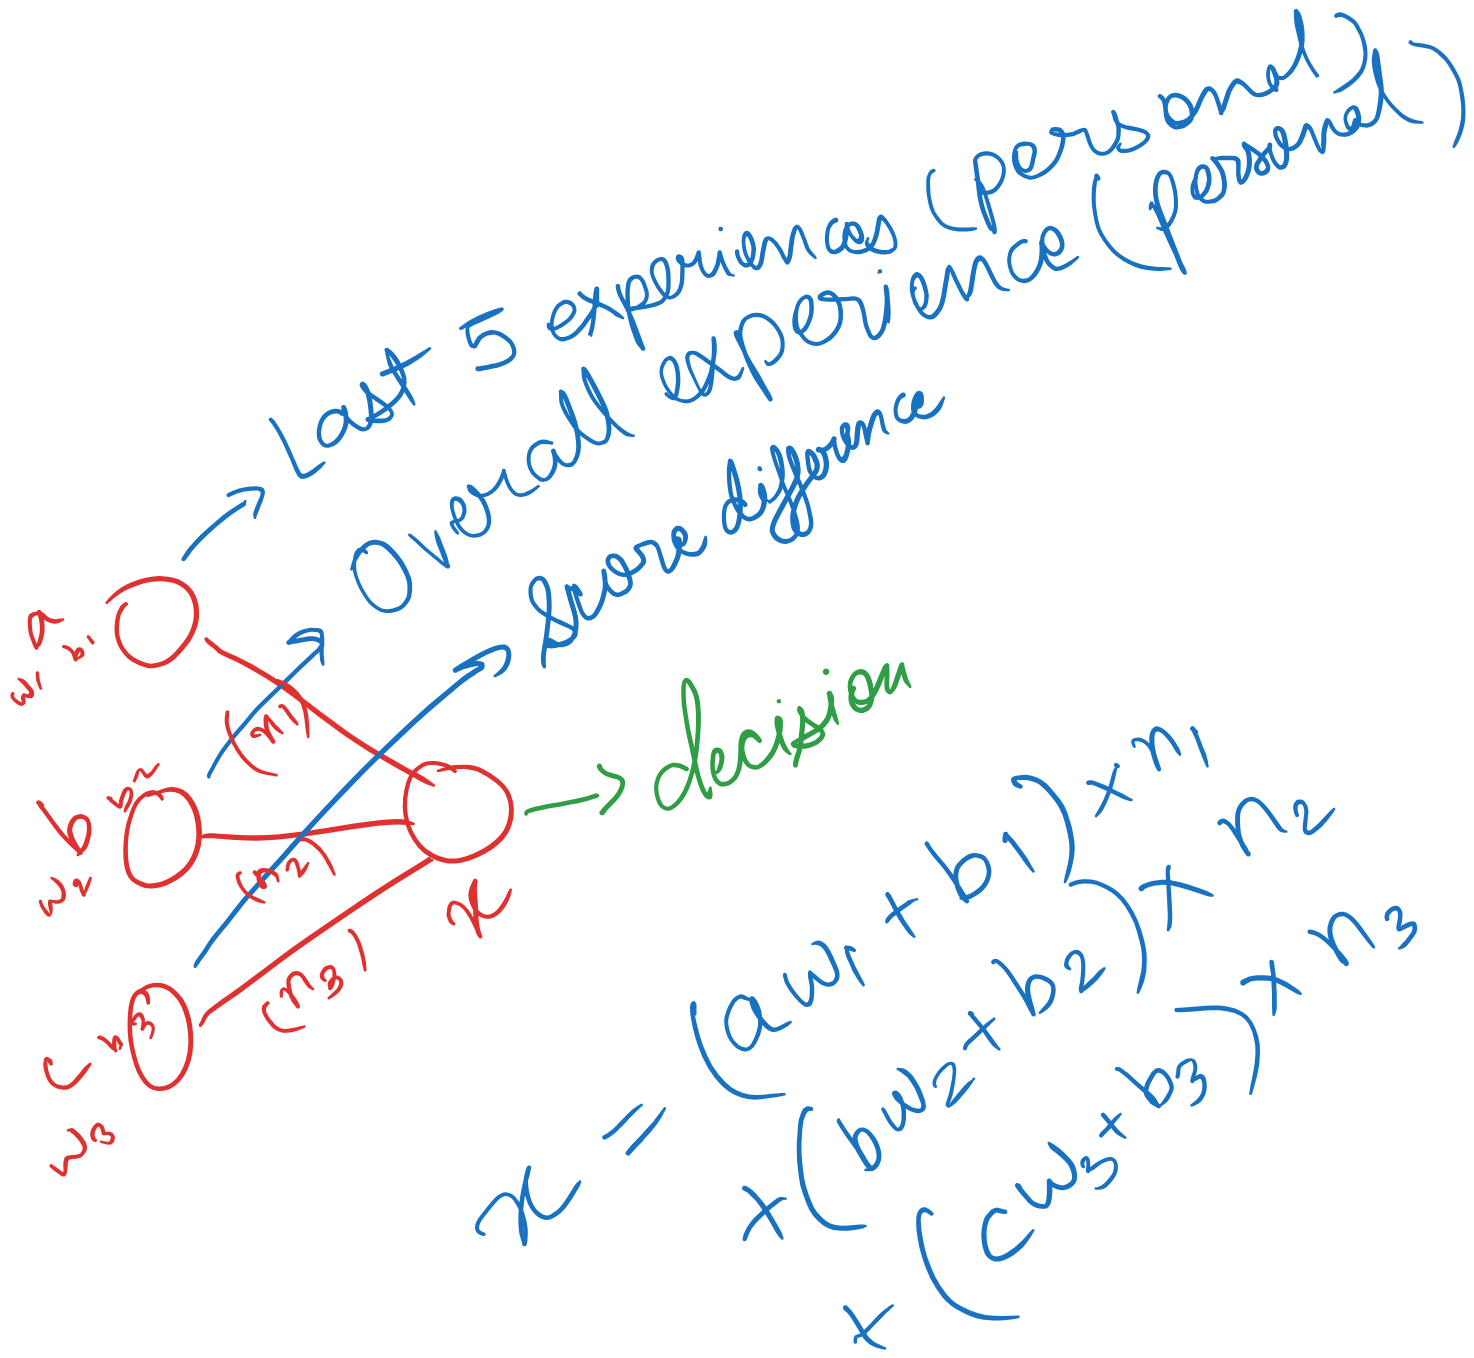 Last 5 experiences (personal)
Overall experience (personal)
Score difference
a
w1 b1
(n1)
b b2
w2
(n2)
c b3
w3
(n3)
x
decision
x = (aw1 + b1) × n1
+ (bw2 + b2) × n2
+ (cw3 + b3) × n3